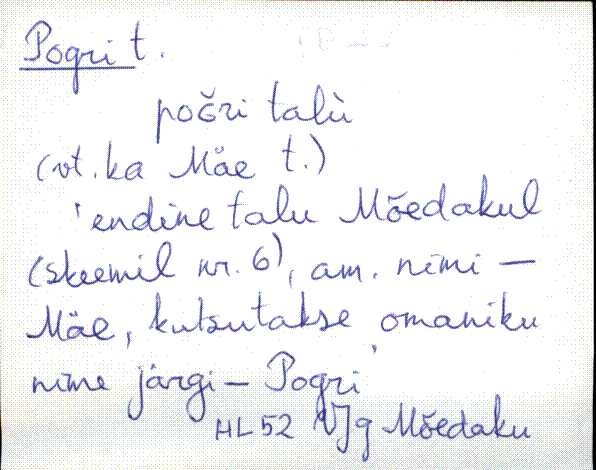 Pogri t.
poğri talù
(vt. ka Mäe t.)
'endine talu Mõedakul
(skeemil nr. 6), am. nimi —
Mäe, kutsutakse omaniku
nime järgi — Pogri'
HL 52 VJg Mõedaku